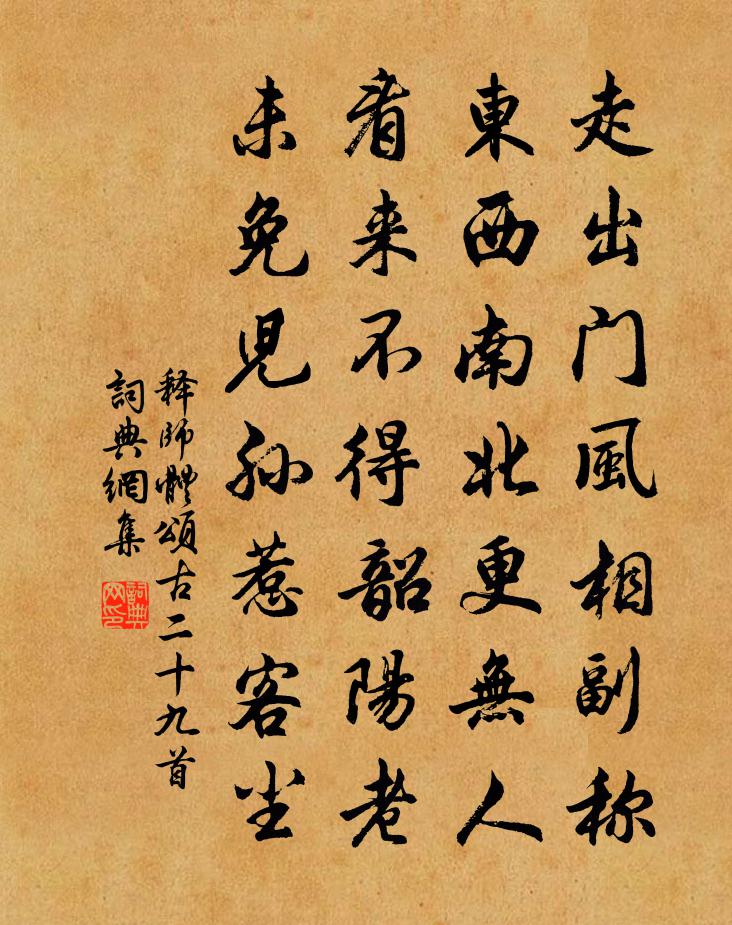 走出门風相副称
東西南北更無人
看来不得韶陽老
未免児孙惹客尘
释師體頌古二十九首
詞典網集
詞典网印